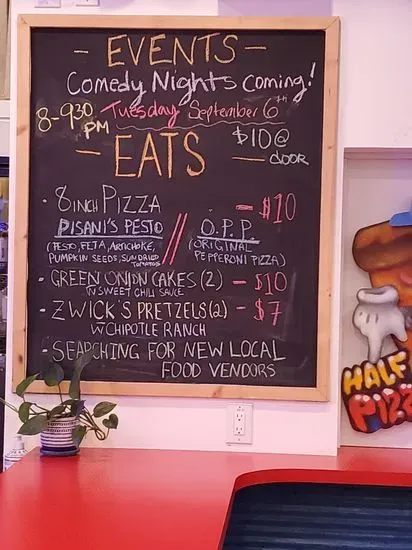 - EVENTS -
Comedy Nights Coming!
8-930 PM Tuesday September 6th
$10@ door
- EATS -
• 8 INCH PIZZA - $10
PISANI'S PESTO // O.P.P.
(PESTO, FETA, ARTICHOKE, PUMPKIN SEEDS, SUN DRIED TOMATOES)
(ORIGINAL PEPPERONI PIZZA)
• GREEN ONION CAKES (2) - $10
W SWEET CHILI SAUCE
• ZWICK'S PRETZELS (2) - $7
W CHIPOTLE RANCH
• SEARCHING FOR NEW LOCAL
FOOD VENDORS
HALF
PIZZ